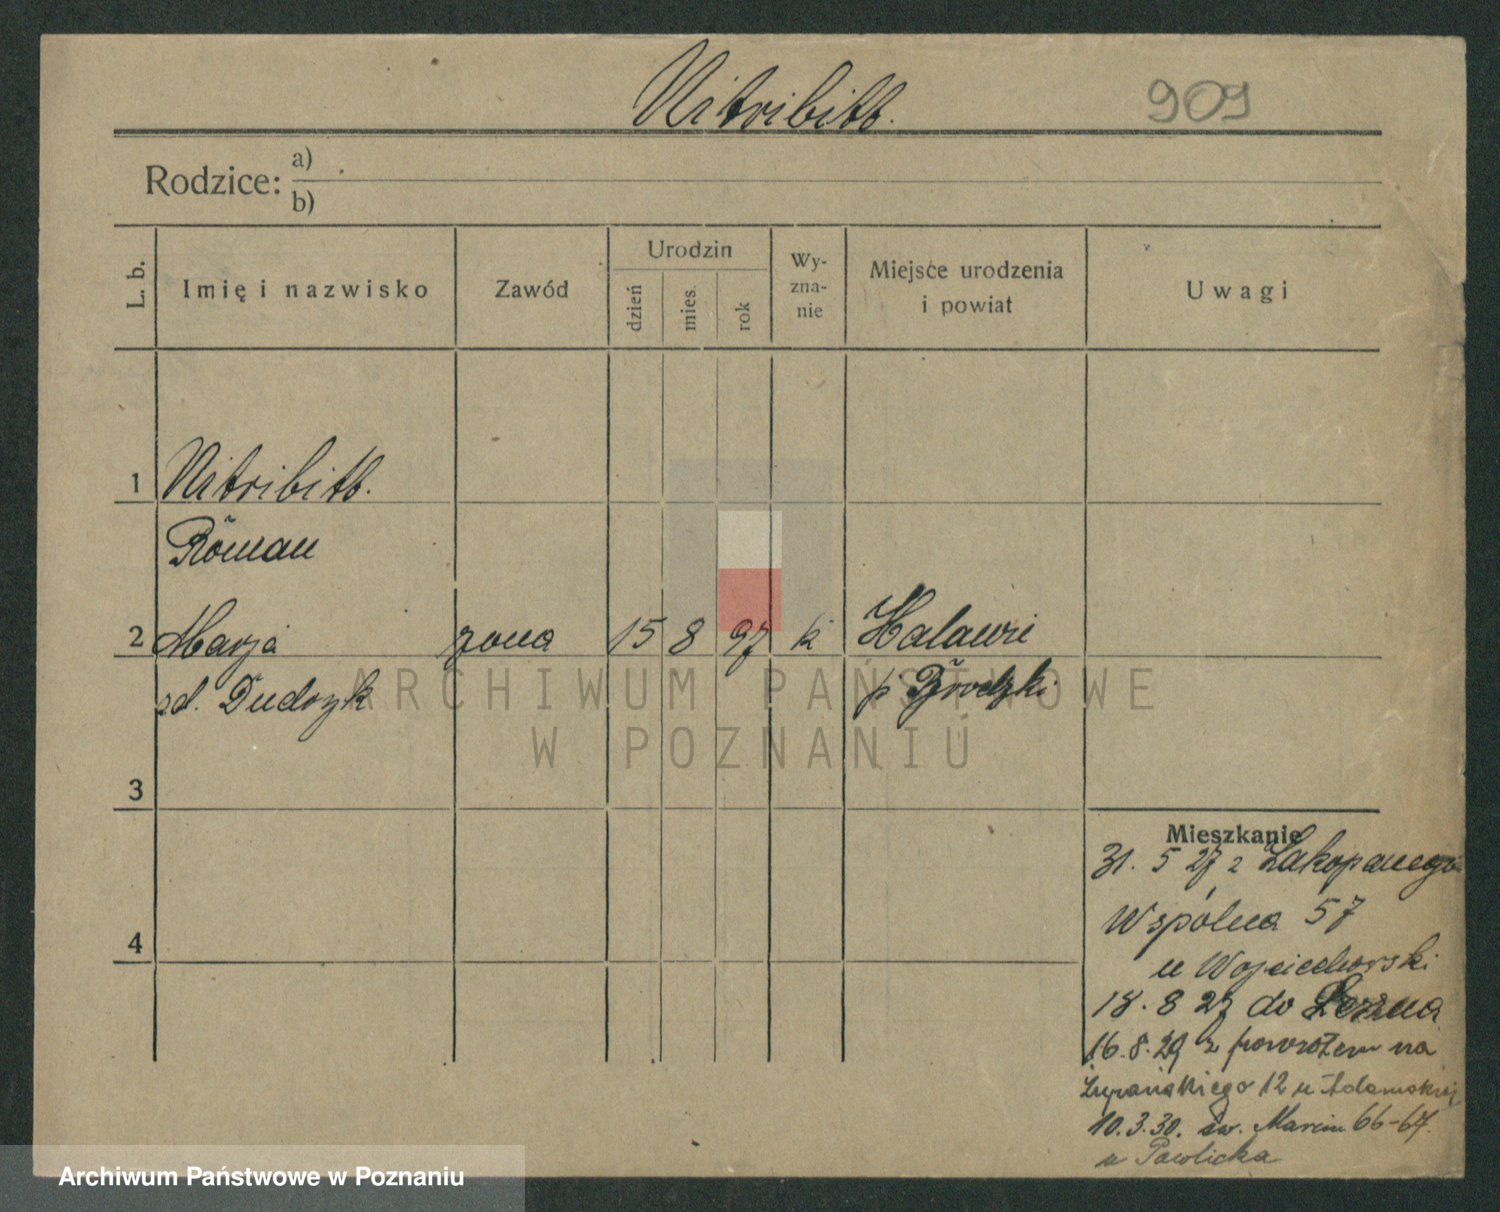 Nitribitt.
909
Rodzice: a)
b)
L. b.
Imię i nazwisko
Zawód
Urodzin
dzień
mies.
rok
Wy-
zna-
nie
Miejsce urodzenia
i powiat
Uwagi
1 Nitribitt.
Roman
2 Marja żona 15 8 97 k
zd. Dudrzyk
3
4
Mieszkanie
31. 5 27 z Zakopanego
Wspólna 57
u Wojciechorski
18. 8 27 do
16. 8. 29 z powrotem na
Żupańskiego 12 u Adamskiej
10. 3. 30. św. Marcin 66-67.
u Pawlicka
ARCHIWUM PAŃSTWOWE
W POZNANIU
Archiwum Państwowe w Poznaniu